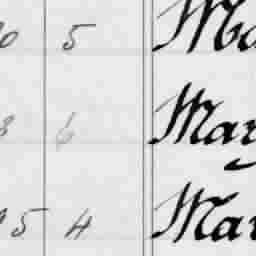 0 5 Ma
3 6 Mary
15 4 Mar